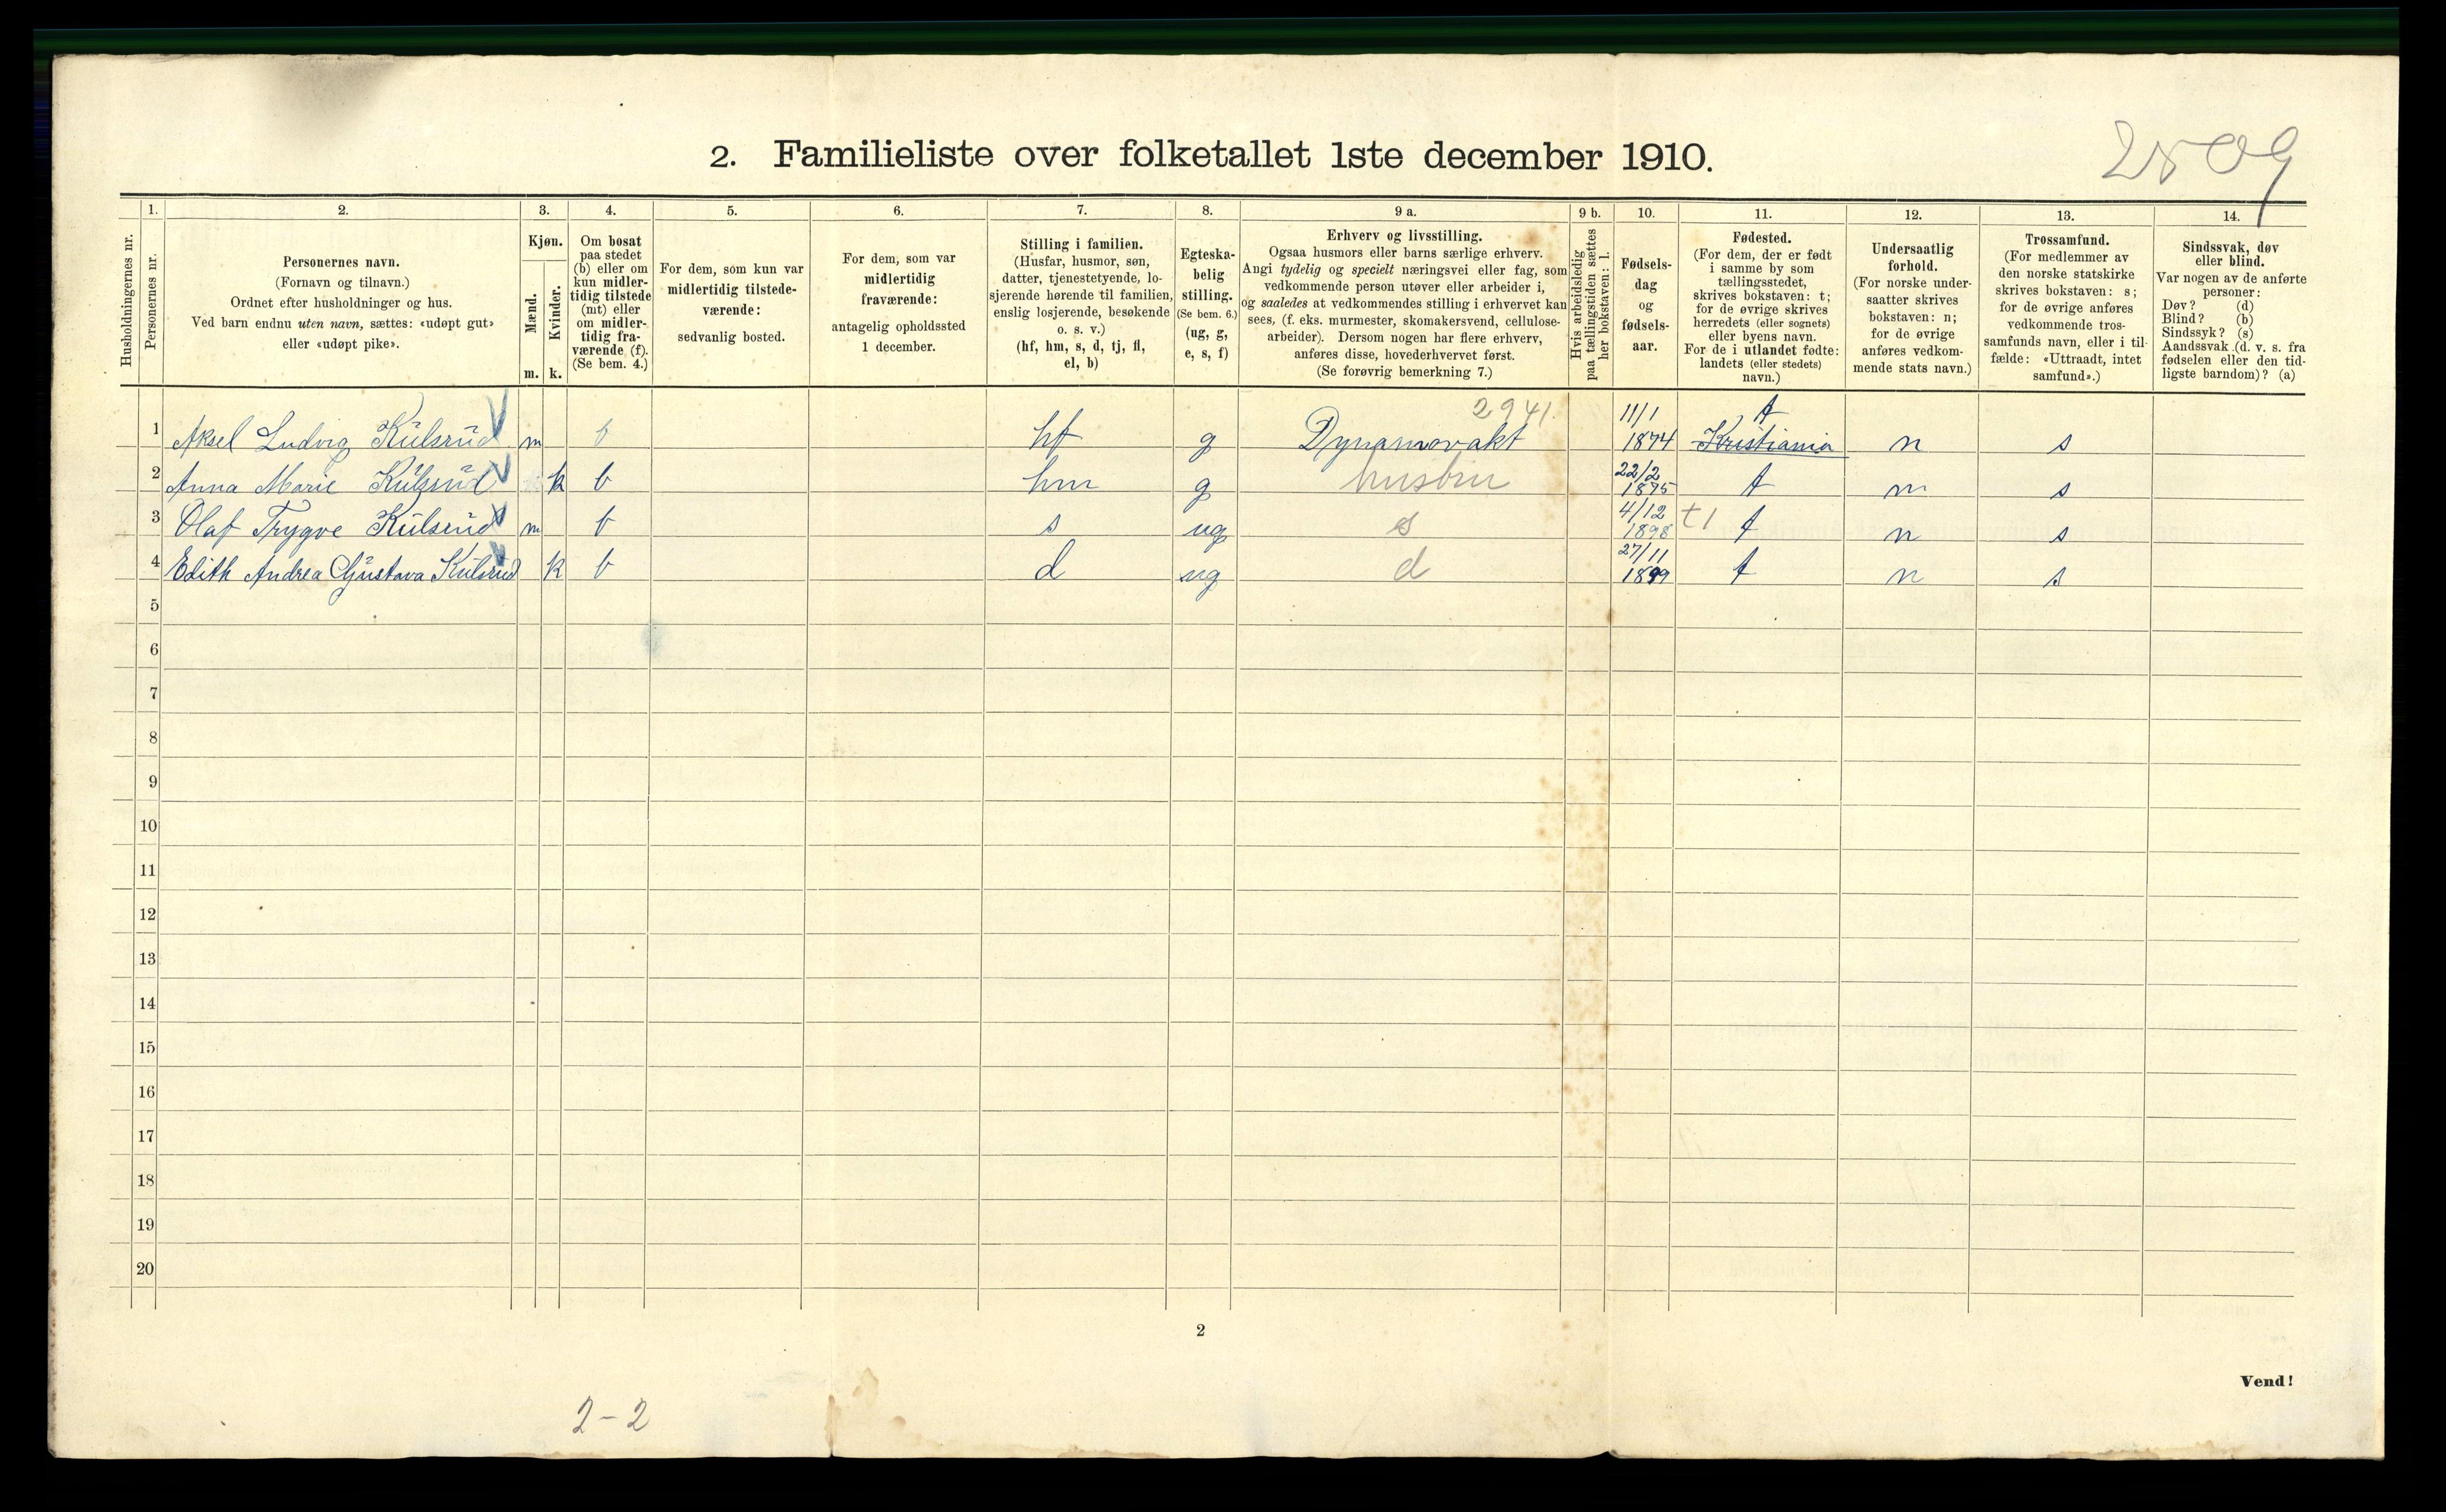 2. Familieliste over folketallet 1ste december 1910.
1. 2. 3. 4. 5. 6. 7. 8. 9 a. 9 b. 10. 11. 12. 13. 14.
Husholdningernes nr.
Personernes nr.
Personernes navn.
(Fornavn og tilnavn.)
Ordnet efter husholdninger og hus.
Ved barn endnu uten navn, sættes: «udøpt gut»
eller «udøpt pike».
Kjøn.
Mænd.
Kvinder.
m. k.
Om bosat
paa stedet
(b) eller om
kun midler-
tidig tilstede
(mt) eller
om midler-
tidig fra-
værende (f).
(Se bem. 4.)
For dem, som kun var
midlertidig tilstede-
værende:
sedvanlig bosted.
For dem, som var
midlertidig
fraværende:
antagelig opholdssted
1 december.
Stilling i familien.
(Husfar, husmor, søn,
datter, tjenestetyende, lo-
sjerende hørende til familien,
enslig losjerende, besøkende
o. s. v.)
(hf, hm, s, d, tj, fl,
el, b)
Egteska-
belig
stilling.
(Se bem. 6.)
(ug, g,
e, s, f)
Erhverv og livsstilling.
Ogsaa husmors eller barns særlige erhverv.
Angi tydelig og specielt næringsvei eller fag, som
vedkommende person utøver eller arbeider i,
og saaledes at vedkommendes stilling i erhvervet kan
sees, (f. eks. murmester, skomakersvend, cellulose-
arbeider). Dersom nogen har flere erhverv,
anføres disse, hovederhvervet først.
(Se forøvrig bemerkning 7.)
Hvis arbeidsledig
paa tællingstiden sættes
her bokstaven: l.
Fødsels-
dag
og
fødsels-
aar.
Fødested.
(For dem, der er født
i samme by som
tællingsstedet,
skrives bokstaven: t;
for de øvrige skrives
herredets (eller sognets)
eller byens navn.
For de i utlandet fødte:
landets (eller stedets)
navn.)
Undersaatlig
forhold.
(For norske under-
saatter skrives
bokstaven: n;
for de øvrige
anføres vedkom-
mende stats navn.)
Trossamfund.
(For medlemmer av
den norske statskirke
skrives bokstaven: s;
for de øvrige anføres
vedkommende tros-
samfunds navn, eller i til-
fælde: «Uttraadt, intet
samfund».)
Sindssvak, døv
eller blind.
Var nogen av de anførte
personer:
Døv? (d)
Blind? (b)
Sindssyk? (s)
Aandssvak (d. v. s. fra
fødselen eller den tid-
ligste barndom)? (a)
2941. 11/1 t
1 Aksel Ludvig Kulsrud m b hf g Dynamovakt 1874 Kristiania n s
22/2
2 Anna Marie Kulsrud k b hm g husbru 1875 t n s
4/12
3 Olaf Trygve Kulsrud m b s ug s 1898 t1 t n s
27/11
4 Edith Andrea Gustava Kulsrud k b d ug d 1899 t n s
5
6
7
8
9
10
11
12
13
14
15
16
17
18
19
20
2
Vend!
2-2